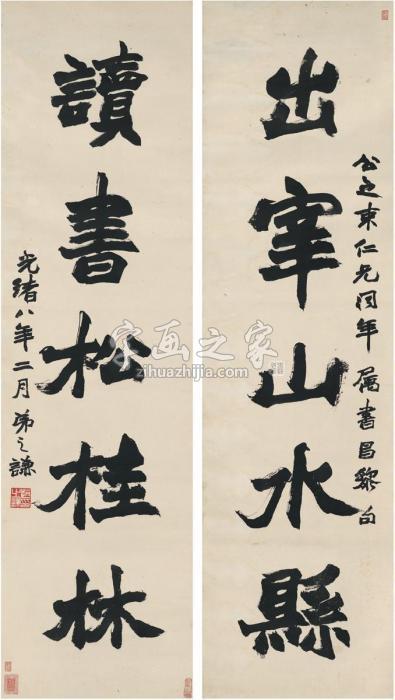 出宰山水縣
公之東仁兄同年属書昌黎句
讀書松桂林
光绪八年二月弟之謙
字画之家
zihuazhijia.com